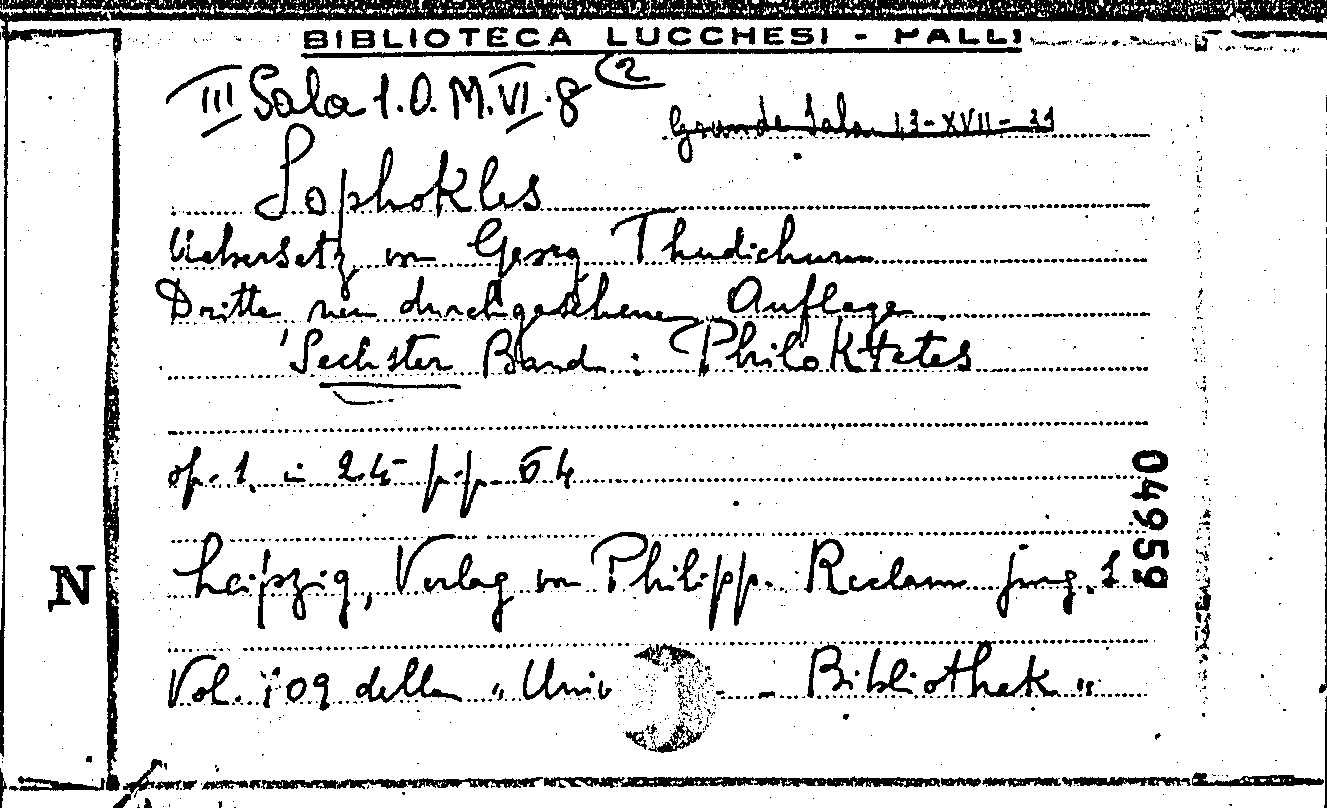 BIBLIOTECA LUCCHESI - PALLI
III Sala 1.O.M.VI.8 (2
Grande Sala 13-XVII-31
Sophokles
Uebersetz von Georg Thudichum
Dritte neu durchgesehene Auflage
Sechster Band : Philoktetes
op. 1. in 24- p.p. 64
Leipzig, Verlag von Philipp. Reclam jung.
Vol. 709 della „ Univ - Bibliothek „
04959
N